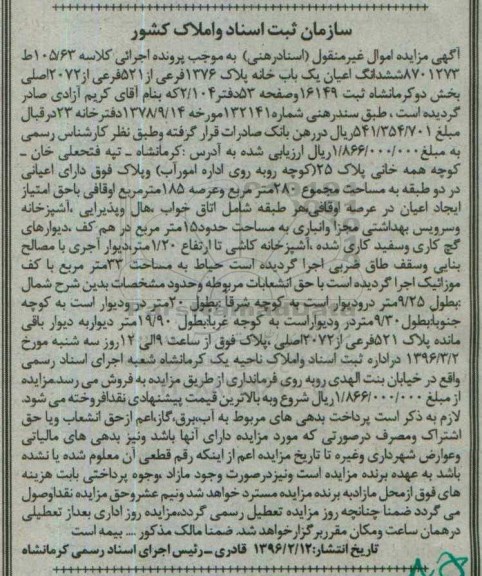 سازمان ثبت اسناد واملاک کشور
آگهی مزایده اموال غیرمنقول (اسنادرهنی) به موجب پرونده اجرائی کلاسه ۱۰۵/۶۳ط
۸۷۰۱۲۷۳ششدانگ اعیان یک باب خانه پلاک ۱۳۷۶فرعی از۵۲۱فرعی از۲۰۷۲اصلی
بخش دوکرمانشاه ثبت ۱۶۱۴۹وصفحه ۵۳دفتر۲/۱۰۴که بنام آقای کریم آزادی صادر
گردیده است ، طبق سندرهنی شماره۱۳۲۱۴۱مورخه ۱۳۷۸/۹/۱۴دفترخانه ۲۳درقبال
مبلغ ۵۴۱/۳۵۴/۷۰۱ریال دررهن بانک صادرات قرار گرفته وطبق نظر کارشناس رسمی
به مبلغ۱/۸۶۶/۰۰۰/۰۰۰ریال ارزیابی شده به آدرس :کرمانشاه ـ تپه فتحعلی خان ـ
کوچه همه خانی پلاک ۲۵(کوچه روبه روی اداره امورآب) وپلاک فوق دارای اعیانی
در دو طبقه به مساحت مجموع ۲۸۰متر مربع وعرصه ۱۸۵مترمربع اوقافی باحق امتیاز
ایجاد اعیان در عرصه اوقافی،هر طبقه شامل اتاق خواب ،هال وپذیرایی ،آشپزخانه
وسرویس بهداشتی مجزا وانباری به مساحت حدود۱۵متر مربع در هم کف ،دیوارهای
گچ کاری وسفید کاری شده ،آشپزخانه کاشی تا ارتفاع ۱/۲۰متر،دیوار آجری با مصالح
بنایی وسقف طاق ضربی اجرا گردیده است حیاط به مساحت ۳۳متر مربع با کف
موزائیک اجرا گردیده است با حق انشعابات مربوطه وحدود مشخصات بدین شرح شمال
:بطول ۹/۲۵متر درودیوار است به کوچه شرقا :بطول ۲۰متر در ودیوار است به کوچه
جنوبا:بطول۹/۳۰متردر ودیواراست به کوچه غربا:بطول ۱۹/۹۰متر دیواربه دیوار باقی
مانده پلاک ۵۲۱فرعی از۲۰۷۲اصلی .پلاک فوق از ساعت ۹الی ۱۲روز سه شنبه مورخ
۱۳۹۶/۳/۲ دراداره ثبت اسناد واملاک ناحیه یک کرمانشاه شعبه اجرای اسناد رسمی
واقع در خیابان بنت الهدی روبه روی فرمانداری از طریق مزایده به فروش می رسد.مزایده
از مبلغ ۱/۸۶۶/۰۰۰/۰۰۰ریال شروع وبه بالاترین قیمت پیشنهادی نقدافروخته می شود.
لازم به ذکر است پرداخت بدهی های مربوط به آب،برق،گاز،اعم ازحق انشعاب ویا حق
اشتراک ومصرف درصورتی که مورد مزایده دارای آنها باشد ونیز بدهی های مالیاتی
وعوارض شهرداری وغیره تا تاریخ مزایده اعم از اینکه رقم قطعی آن معلوم شده یا نشده
باشد به عهده برنده مزایده است ونیزدرصورت وجود مازاد ،وجوه پرداختی بابت هزینه
های فوق ازمحل مازادبه برنده مزایده مسترد خواهد شد ونیم عشر وحق مزایده نقداوصول
می گردد ضمنا چنانچه روز مزایده تعطیل رسمی گردد،مزایده روز اداری بعداز تعطیلی
درهمان ساعت ومکان مقرربرگزارخواهد شد. ضمنا مالک مذکور .... بیمه است
تاریخ انتشار:۱۳۹۶/۲/۱۲ قادری ـرئیس اجرای اسناد رسمی کرمانشاه